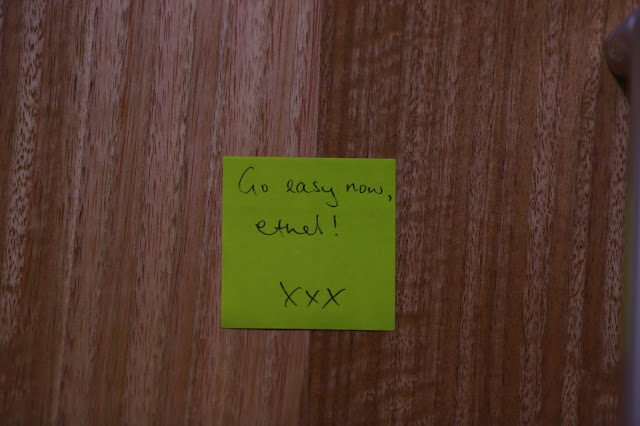 Go easy now,
ethel!
XXX